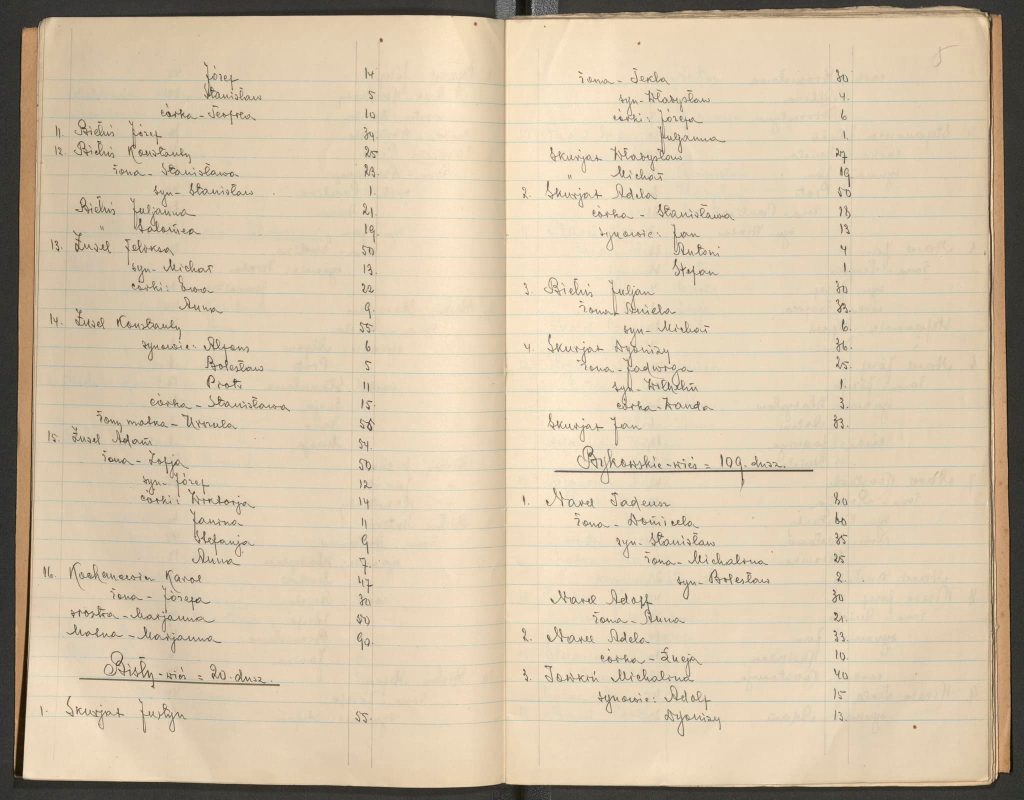 Józef 14
Stanisław 5
córka - Teofila 10
11. Bieluś Józef 34
12. Bieluś Konstanty 25
żona - Stanisława 23.
syn - Stanisław . 1.
Bieluś Juljanna 21.
" Salomea 19.
13. Zusel Feliksa 50
syn - Michał 13.
córki: Ewa 22
Anna 9.
14. Zusel Konstanty 55.
synowie: Alfons 6
Bolesław 5
Piotr 11
córka - Stanisława 15.
żony matka - Urszula 58
15. Zusel Adam 54.
żona - Zofja 50
syn - Józef 12
córki: Wiktorja 14
Janina 11
Stefanja 9
Anna 7
16. Kochanowicz Karol 47
żona - Józefa 30
siostra - Marjanna 50
Matka - Marjanna 90.
Bisły - wieś = 20. dusz.
1. Skurjat Justyn 55.
5
żona - Tekla 30
syn - Władysław 4.
córki: Józefa 6
Juljanna 1.
Skurjat Władysław 27
" Michał 19
2. Skurjat Adela 50
córka - Stanisława 18
synowie: Jan 13
Antoni 4
Stefan 1.
3. Bieluś Juljan 30
żona - Aniela 33.
syn - Michał 6.
4. Skurjat Dyonizy 36.
żona - Jadwiga 25.
syn - Wilhelm 1.
córka - Wanda 3.
Skurjat Jan 33.
Bykowskie - wieś = 109. dusz.
1. Narel Tadeusz 80
żona - Domicela 60
syn - Stanisław 35
żona - Michalina 25
syn - Bolesław 2.
Narel Adolf 30
żona - Anna 21.
2. Narel Adela 33.
córka - Łucja 10.
3. Michalina 40
synowie: Adolf 15
Dyonizy 13.